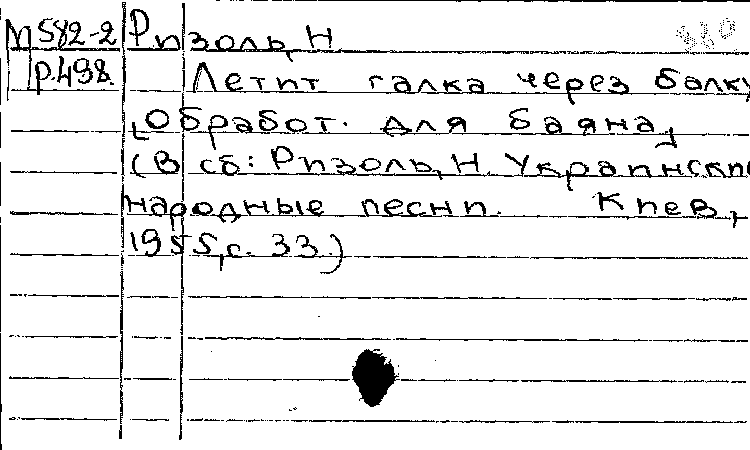 М582-2 Ризоль, Н.
р.498. Летит галка через балку
[Обработ. для баяна]
(В сб: Ризоль, Н. Украинские
народные песни. Киев,
1955, с. 33.)